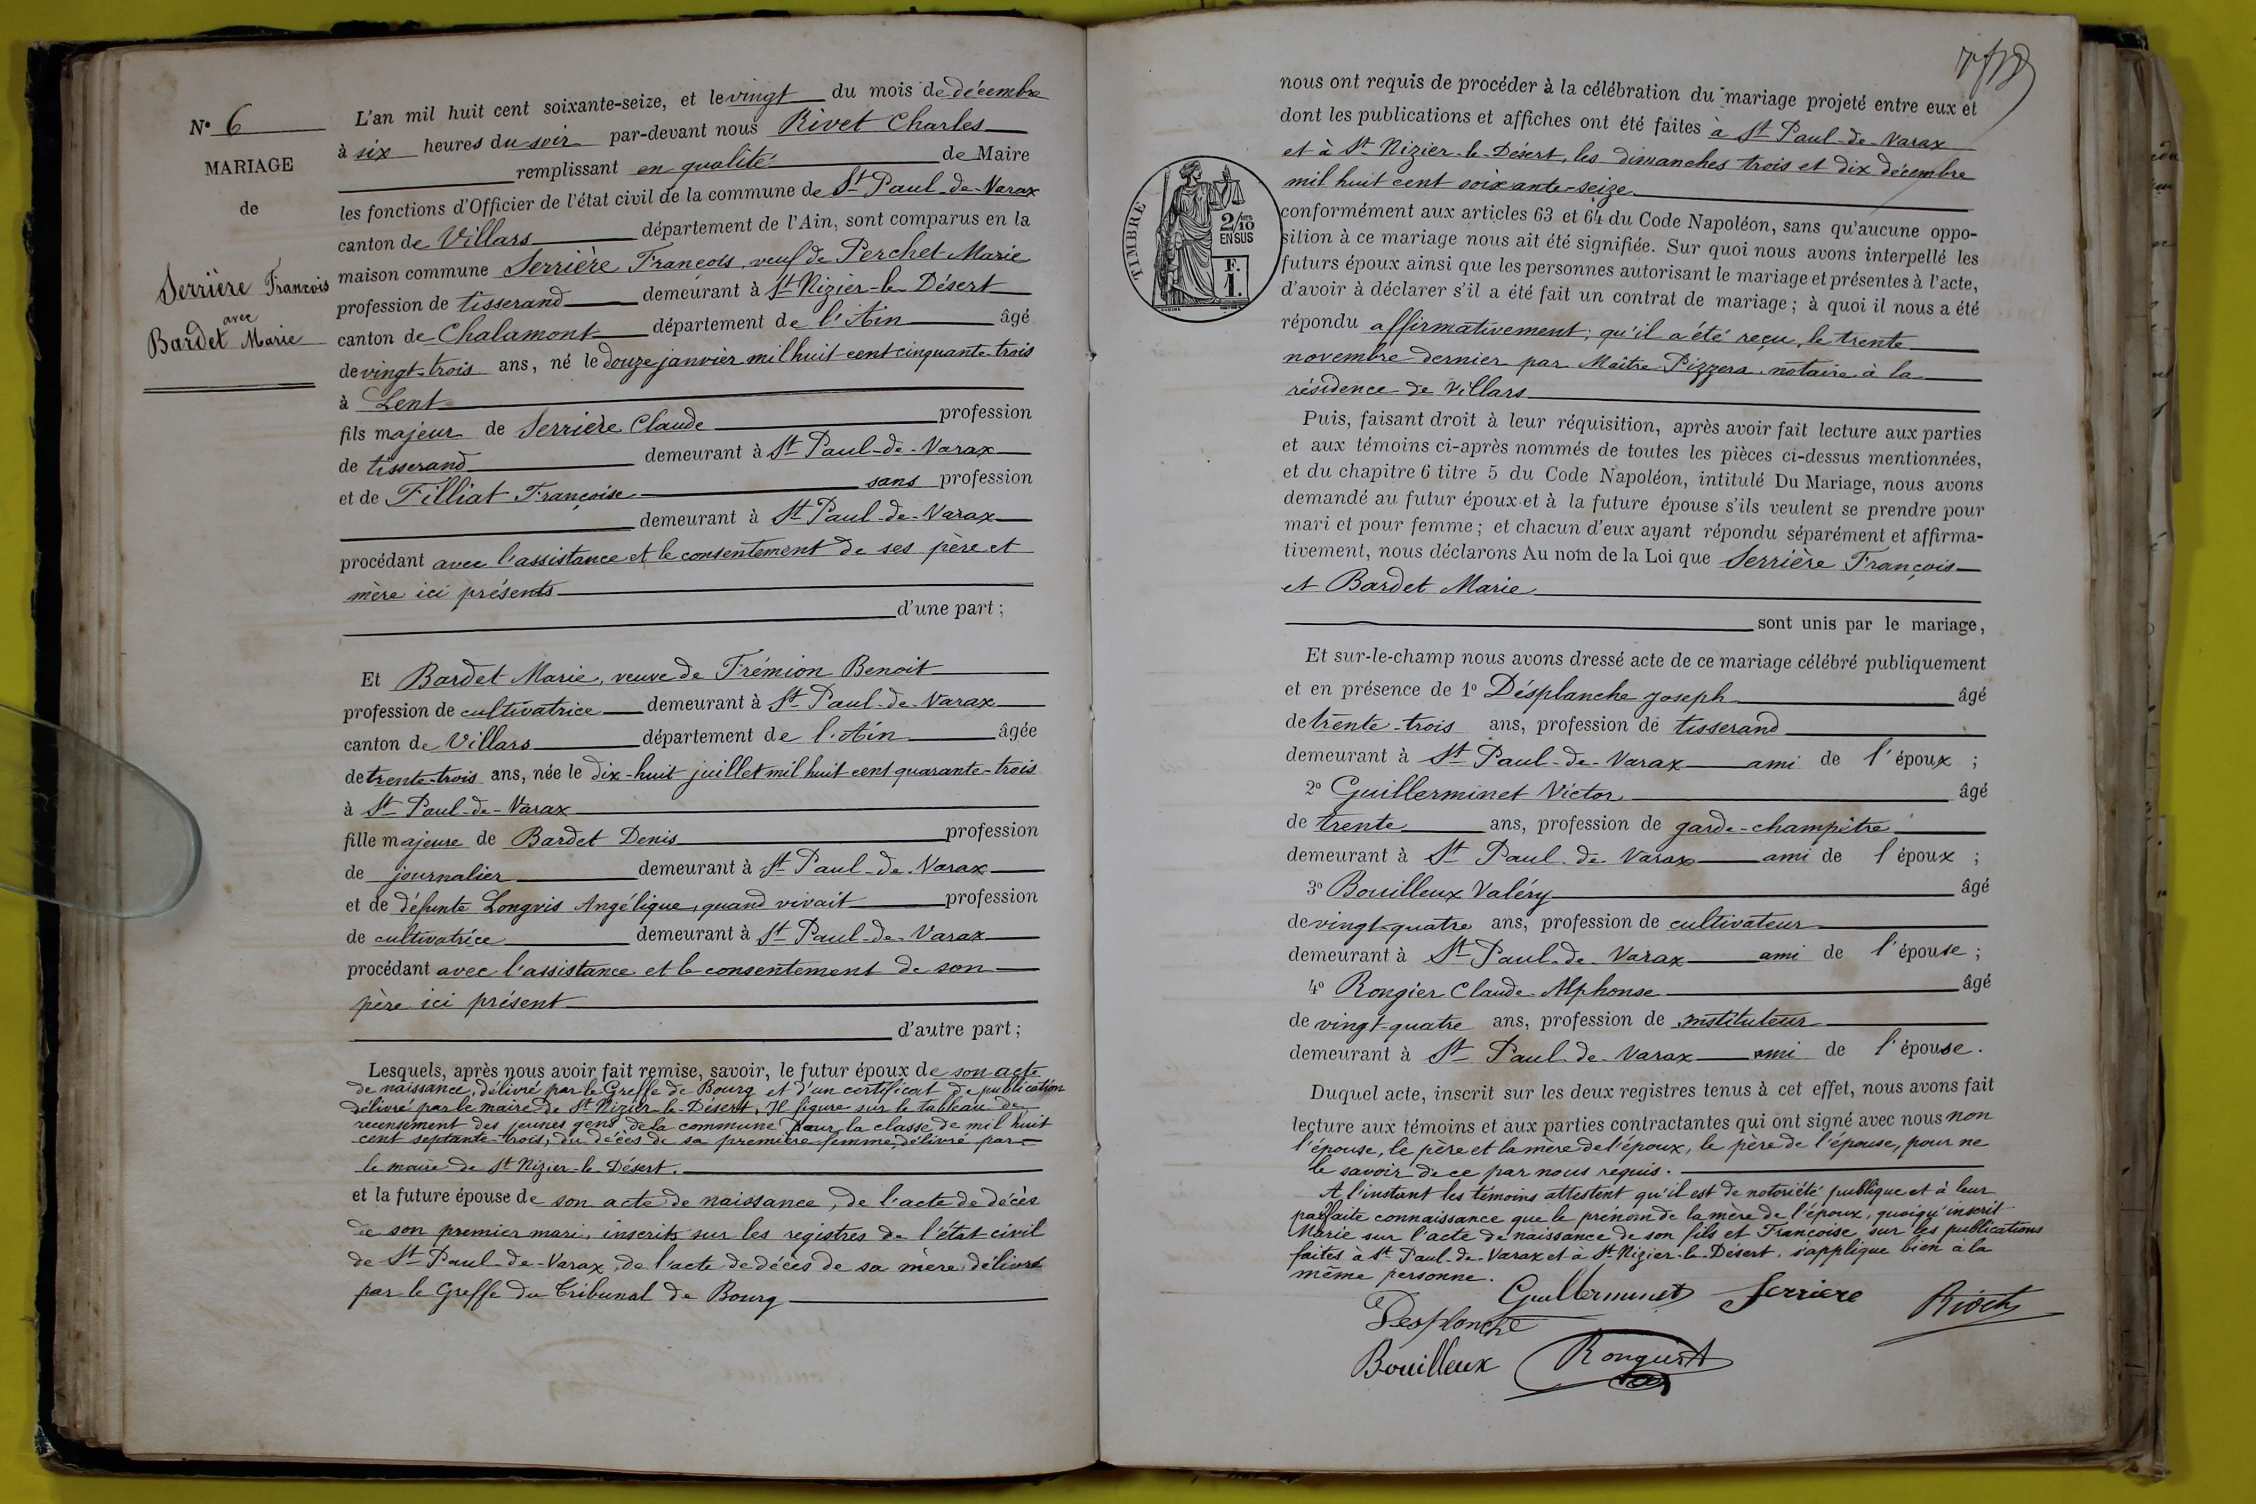 N° 6
MARIAGE
de
Serrière François
avec
Bardet Marie
L'an mil huit cent soixante-seize, et le vingt du mois de décembre
à six heures du soir par-devant nous Rivet Charles
remplissant en qualité de Maire
les fonctions d'Officier de l'état civil de la commune de St Paul-de-Varax
canton de Villars département de l'Ain, sont comparus en la
maison commune Serrière François, veuf de Perchet Marie
profession de tisserand demeurant à St Nizier-le-Désert
canton de Chalamont département de l'Ain âgé
de vingt-trois ans, né le douze janvier mil huit cent cinquante-trois
à Lent
fils majeur de Serrière Claude profession
de tisserand demeurant à St Paul-de-Varax
et de Filliat Françoise sans profession
demeurant à St Paul-de-Varax
procédant avec l'assistance et le consentement de ses père et
mère ici présents
d'une part;
Et Bardet Marie, veuve de Frémion Benoit
profession de cultivatrice demeurant à St Paul-de-Varax
canton de Villars département de l'Ain âgée
de trente-trois ans, née le dix-huit juillet mil huit cent quarante-trois
à St Paul-de-Varax
fille majeure de Bardet Denis profession
de journalier demeurant à St Paul-de-Varax
et de défunte Longvis Angélique, quand vivait profession
de cultivatrice demeurant à St Paul-de-Varax
procédant avec l'assistance et le consentement de son
père ici présent
d'autre part;
Lesquels, après nous avoir fait remise, savoir, le futur époux de son acte
de naissance, délivré par le Greffe de Bourg et d'un certificat de publication
délivré par le maire de St Nizier-le-Désert, Il figure sur le tableau de
recensement des jeunes gens de la commune pour la classe de mil huit
cent septante-trois, du décès de sa première femme délivré par
le maire de St Nizier-le-Désert.
et la future épouse de son acte de naissance, de l'acte de décès
de son premier mari, inscrits sur les registres de l'état civil
de St Paul-de-Varax, de l'acte de décès de sa mère délivré
par le Greffe du Tribunal de Bourg
nous ont requis de procéder à la célébration du mariage projeté entre eux et
dont les publications et affiches ont été faites à St Paul-de-Varax
et à St Nizier-le-Désert, les dimanches trois et dix décembre
mil huit cent soixante-seize
TIMBRE
2/10 EN SUS
F. 1.
conformément aux articles 63 et 64 du Code Napoléon, sans qu'aucune oppo-
sition à ce mariage nous ait été signifiée. Sur quoi nous avons interpellé les
futurs époux ainsi que les personnes autorisant le mariage et présentes à l'acte,
d'avoir à déclarer s'il a été fait un contrat de mariage; à quoi il nous a été
répondu affirmativement; qu'il a été reçu le trente
novembre dernier par Maître Pizzera notaire à la
résidence de Villars
Puis, faisant droit à leur réquisition, après avoir fait lecture aux parties
et aux témoins ci-après nommés de toutes les pièces ci-dessus mentionnées,
et du chapitre 6 titre 5 du Code Napoléon, intitulé Du Mariage, nous avons
demandé au futur époux et à la future épouse s'ils veulent se prendre pour
mari et pour femme; et chacun d'eux ayant répondu séparément et affirma-
tivement, nous déclarons Au nom de la Loi que Serrière François
et Bardet Marie
sont unis par le mariage,
Et sur-le-champ nous avons dressé acte de ce mariage célébré publiquement
et en présence de 1° Désplanche Joseph âgé
de trente-trois ans, profession de tisserand
demeurant à St Paul-de-Varax ami de l'époux;
2° Guillerminet Victor âgé
de trente ans, profession de garde-champêtre
demeurant à St Paul-de-Varax ami de l'époux;
3° Bouilleux Valéry âgé
de vingt-quatre ans, profession de cultivateur
demeurant à St Paul-de-Varax ami de l'épouse;
4° Rongier Claude Alphonse âgé
de vingt-quatre ans, profession de instituteur
demeurant à St Paul-de-Varax ami de l'épouse.
Duquel acte, inscrit sur les deux registres tenus à cet effet, nous avons fait
lecture aux témoins et aux parties contractantes qui ont signé avec nous non
l'épouse, le père et la mère de l'époux, le père de l'épouse, pour ne
le savoir de ce par nous requis.
A l'instant les témoins attestent qu'il est de notoriété publique et à leur
parfaite connaissance que le prénom de la mère de l'époux, quoiqu'inscrit
Marie sur l'acte de naissance de son fils et Françoise sur les publications
faites à St Paul-de-Varax et à St Nizier-le-Désert, s'applique bien à la
même personne.
Guillerminet Serriere Rivet
Desplanche
Bouilleux Rongier